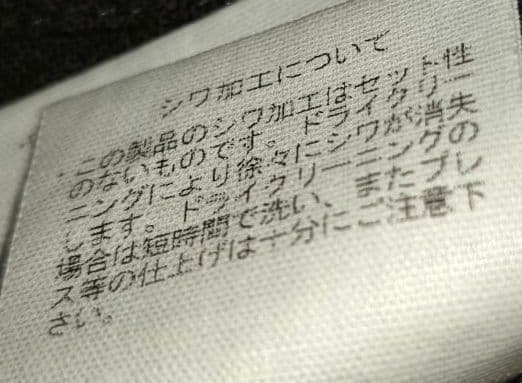 シワ加工について
・この製品のシワ加工はセット性
のないものです。ドライクリー
ニングにより徐々にシワが消失
します。ドライクリーニングの
場合は短時間で洗い、またプレ
ス等の仕上げは十分にご注意下
さい。